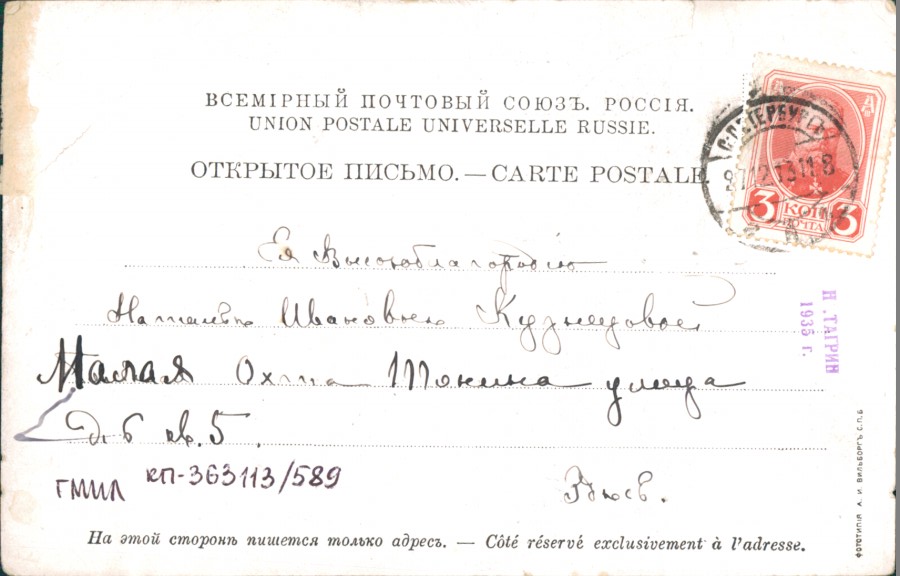 ВСЕМІРНЫЙ ПОЧТОВЫЙ СОЮЗЪ. РОССІЯ.
UNION POSTALE UNIVERSELLE RUSSIE.
ОТКРЫТОЕ ПИСЬМО. — CARTE POSTALE
С.ПЕТЕРБУРГЪ
3 КОП 3
ПОЧТА
Ея Высокоблагородію
Наталье Ивановне Кузнецовой
Малая Охта Тонина улица
д. 6 кв. 5.
Здѣсь.
ГМИЛ КП-363113/589
На этой сторонѣ пишется только адресъ. — Côté réservé exclusivement à l'adresse.
Н. ТАГРИН
1935 г.
ФОТОТИПІЯ А. И. ВИЛЬБОРГЪ С.П.Б